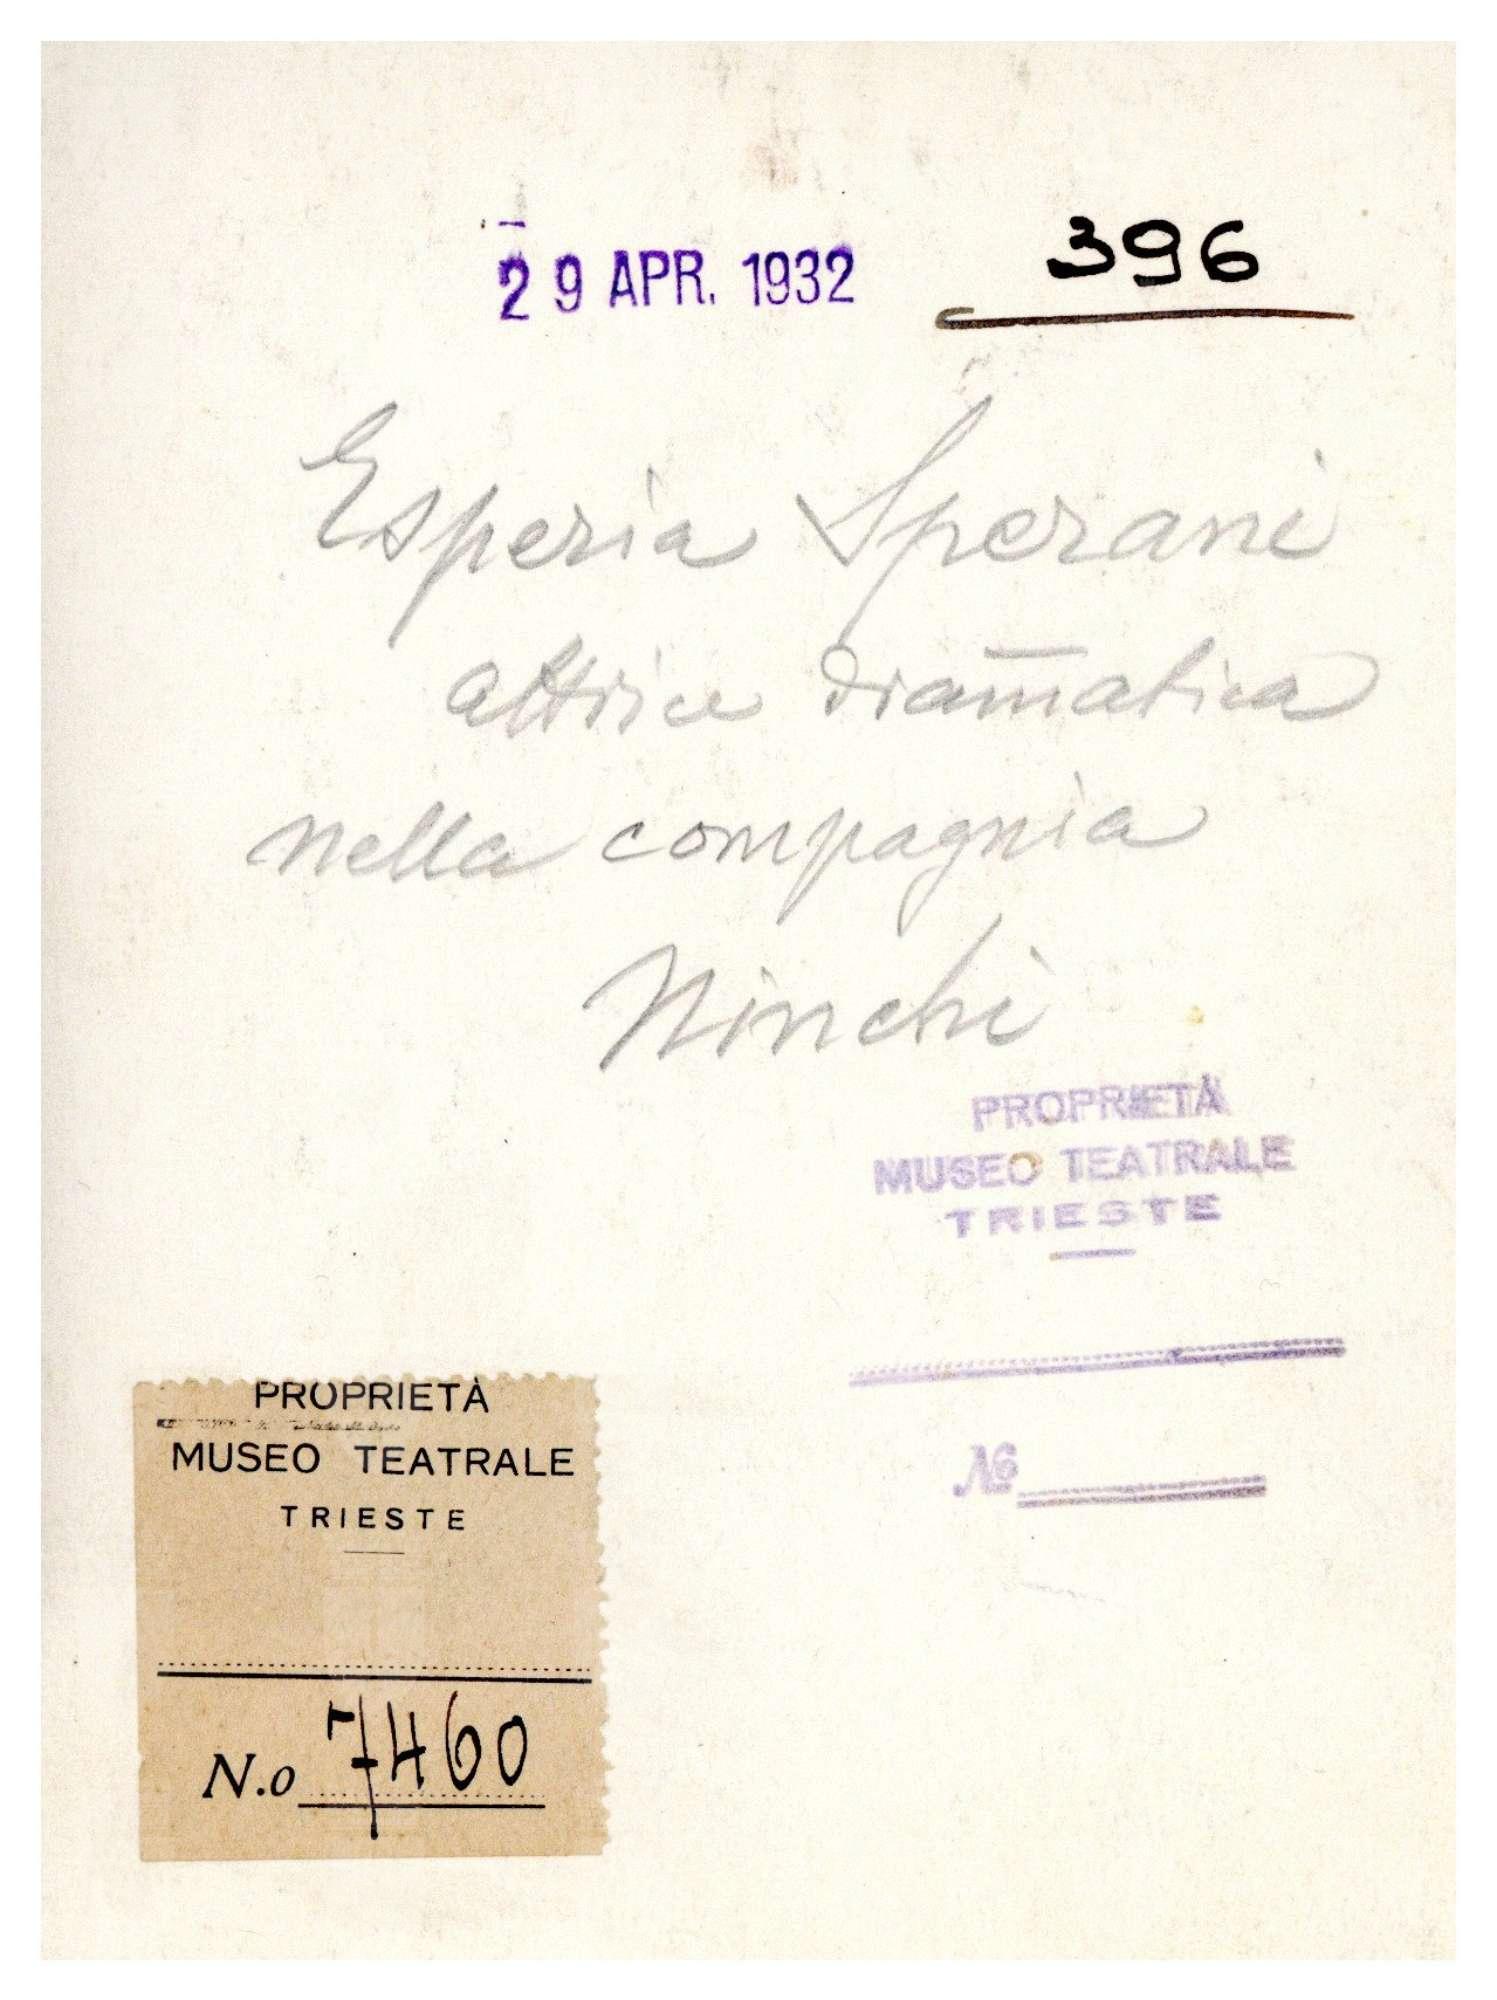 29 APR. 1932
396
Esperia Sperani
attrice dram̅atica
nella compagnia
Ninchi
PROPRIETÀ
MUSEO TEATRALE
TRIESTE
№
PROPRIETÀ
MUSEO TEATRALE
TRIESTE
N.o 7460